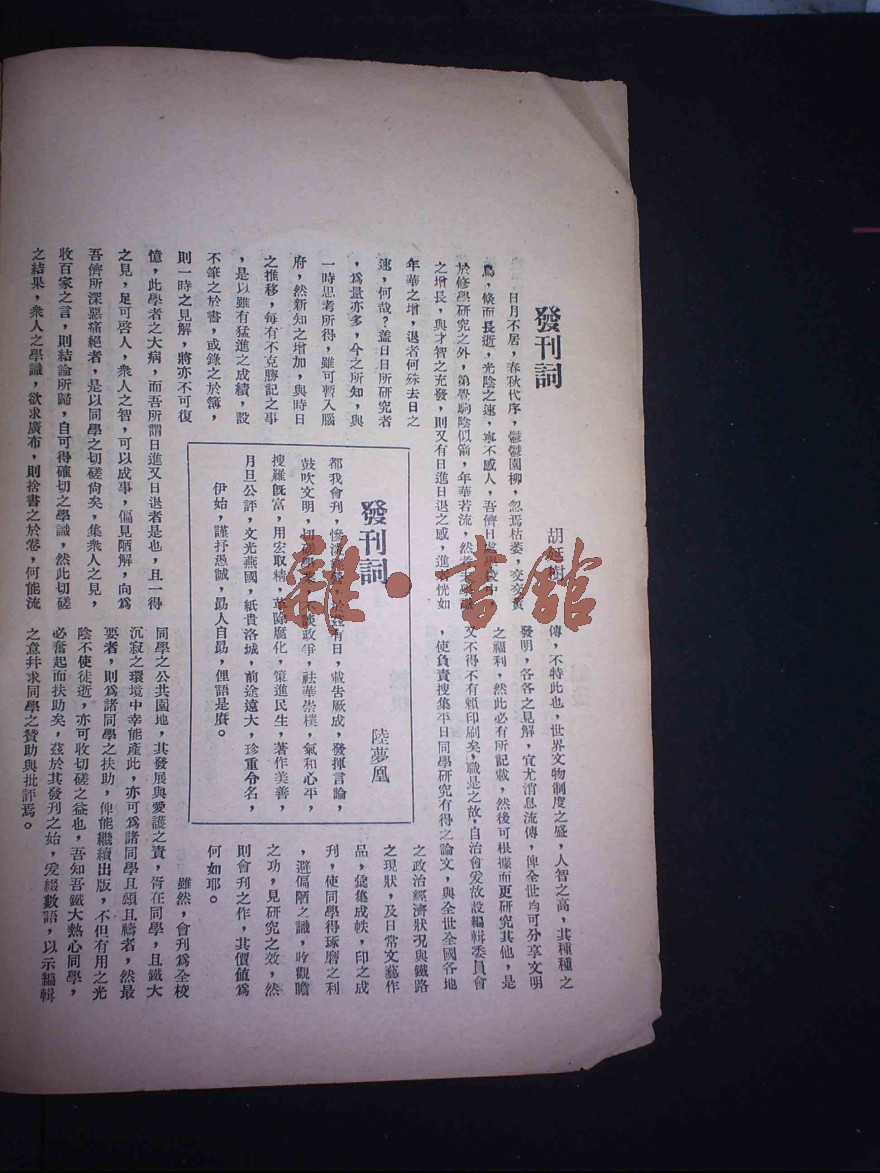 發刊詞
胡
日月不居，春秋代序，鬱鬱園柳，忽焉枯萎，交交黃
鳥，倏而長逝，光陰之速，寧不感人，吾儕日處
於修學研究之外，第覺駒陰似箭，年華若流，然
之增長，與才智之充發，則又有日進日退之感，進者恍如
年華之增，退者何殊去日之
速，何哉？蓋日日所研究者
，為量亦多，今之所知，與
一時思考所得，雖可暫入腦
府，然新知之增加，與時日
之推移，每有不克勝記之事
，是以雖有猛進之成績，設
不筆之於書，或錄之於簿，
則一時之見解，將亦不可復
憶，此學者之大病，而吾所謂日進又日退者是也，且一得
之見，足可啓人，衆人之智，可以成事，偏見陋解，向為
吾儕所深惡痛絕者，是以同學之切磋尚矣，集衆人之見，
收百家之言，則結論所歸，自可得確切之學識，然此切磋
之結果，衆人之學識，欲求廣布，則捨書之於卷，何能流
傳，不特此也，世界文物制度之盛，人智之高，其種種之
發明，各各之見解，宜尤消息流傳，俾全世均可分享文明
之福利，然此必有所記載，然後可根據而更研究其他，是
文不得不有賴印刷矣，職是之故，自治會爰故設編輯委員會
，使負責搜集平日同學研究有得之論文，與全世全國各地
之政治經濟狀況與鐵路
之現狀，及日常文藝作
品，彙集成帙，印之成
刊，使同學得琢磨之利
，避偏陋之譏，收觀瞻
之功，見研究之效，然
則會刊之作，其價值為
何如耶。
雖然，會刊為全校
同學之公共園地，其發展與愛護之責，胥在同學，且鐵大
沉寂之環境中幸能產此，亦可為諸同學且頌且禱者，然最
要者，則為諸同學之扶助，俾能繼續出版，不但有用之光
陰不使徒逝，亦可收切磋之益也，吾知吾鐵大熱心同學，
必奮起而扶助矣，茲於其發刊之始，爰綴數語，以示編輯
之意幷求同學之贊助與批評焉。
發刊詞
陸夢凰
都我會刊，慘淡，於茲有日，載告厥成，發揮言論，
鼓吹文明，政爭，祛華崇樸，氣和心平，
搜羅旣富，用宏取精，革除腐化，策進民生，著作美善，
月旦公評，文光燕國，紙貴洛城，前途遠大，珍重令名，
伊始，謹抒愚誠，勗人自勗，俚語是賡。
雜·書館